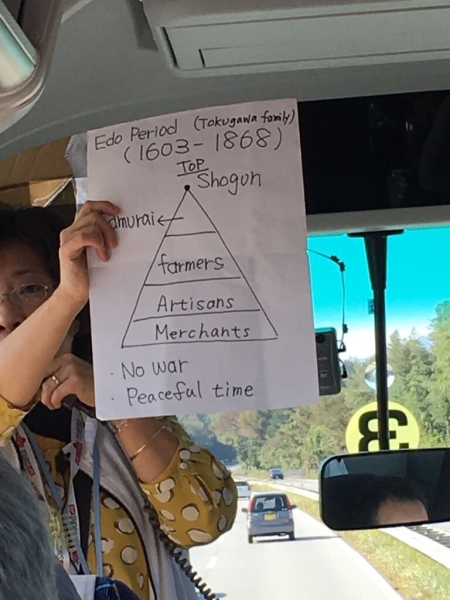 Edo Period (Tokugawa family)
(1603-1868)
TOP
Shogun
amurai←
farmers
Artisans
Merchants
· No war
· Peaceful time